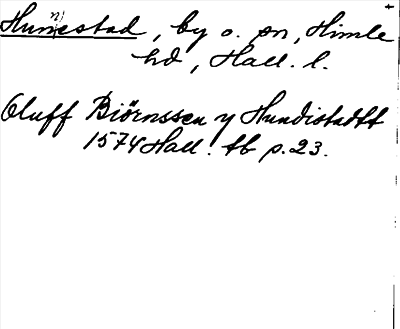 Hun(n)estad, by o. sn, Himle
hd, Hall. l.
Oluff Biörnssen y Hundistadtt
1574 Hall. tb p. 23.